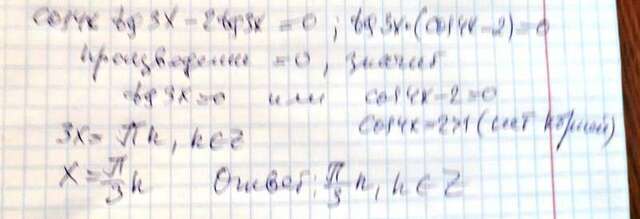 cos14x tg3x-2tg3x=0; tg3x·(cos14x-2)=0
произведение =0, значит
tg3x=0 или cos14x-2=0
3x=πn, n∈Z cos14x=2>1 (нет корней)
x=π/3 n Ответ: π/3 n, n∈Z